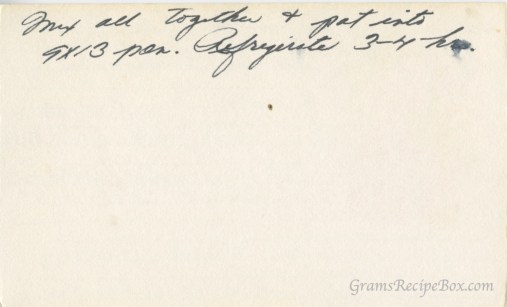 Mix all together & pat into
9x13 pan. Refrigirate 3-4 hrs.
GramsRecipeBox.com